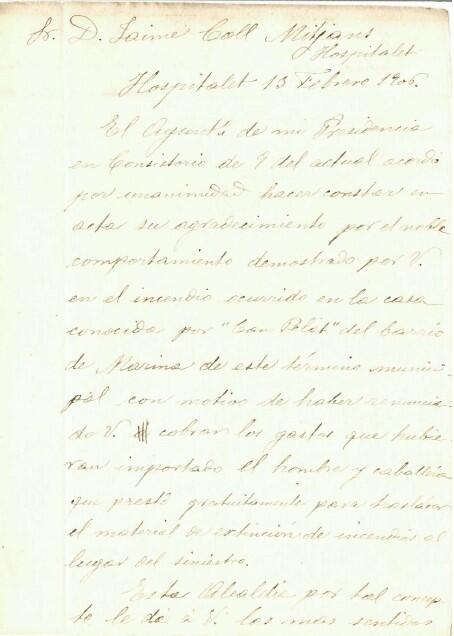 Sr. D. Jaime Coll Mitjans
Hospitalet
Hospitalet 13 Febrero 1906.
El Ayunto de mi Presidencia
en Consistorio de 9 del actual acordó
por unanimidad hacer constar en
acta su agradecimiento por el noble
comportamiento demostrado por V.
en el incendio ocurrido en la casa
conocida por "Can Pelót" del barrio
de Marina de este término munici-
pal con motivo de haber renuncia-
do V. cobrar los gastos que hubie-
ran importado el hombre y caballeria
que prestó gratuitamente para trasladar
el material de extinción de incendios al
lugar del siniestro.
Esta Alcaldia por tal concep-
to le dá á V. las mas sentidas